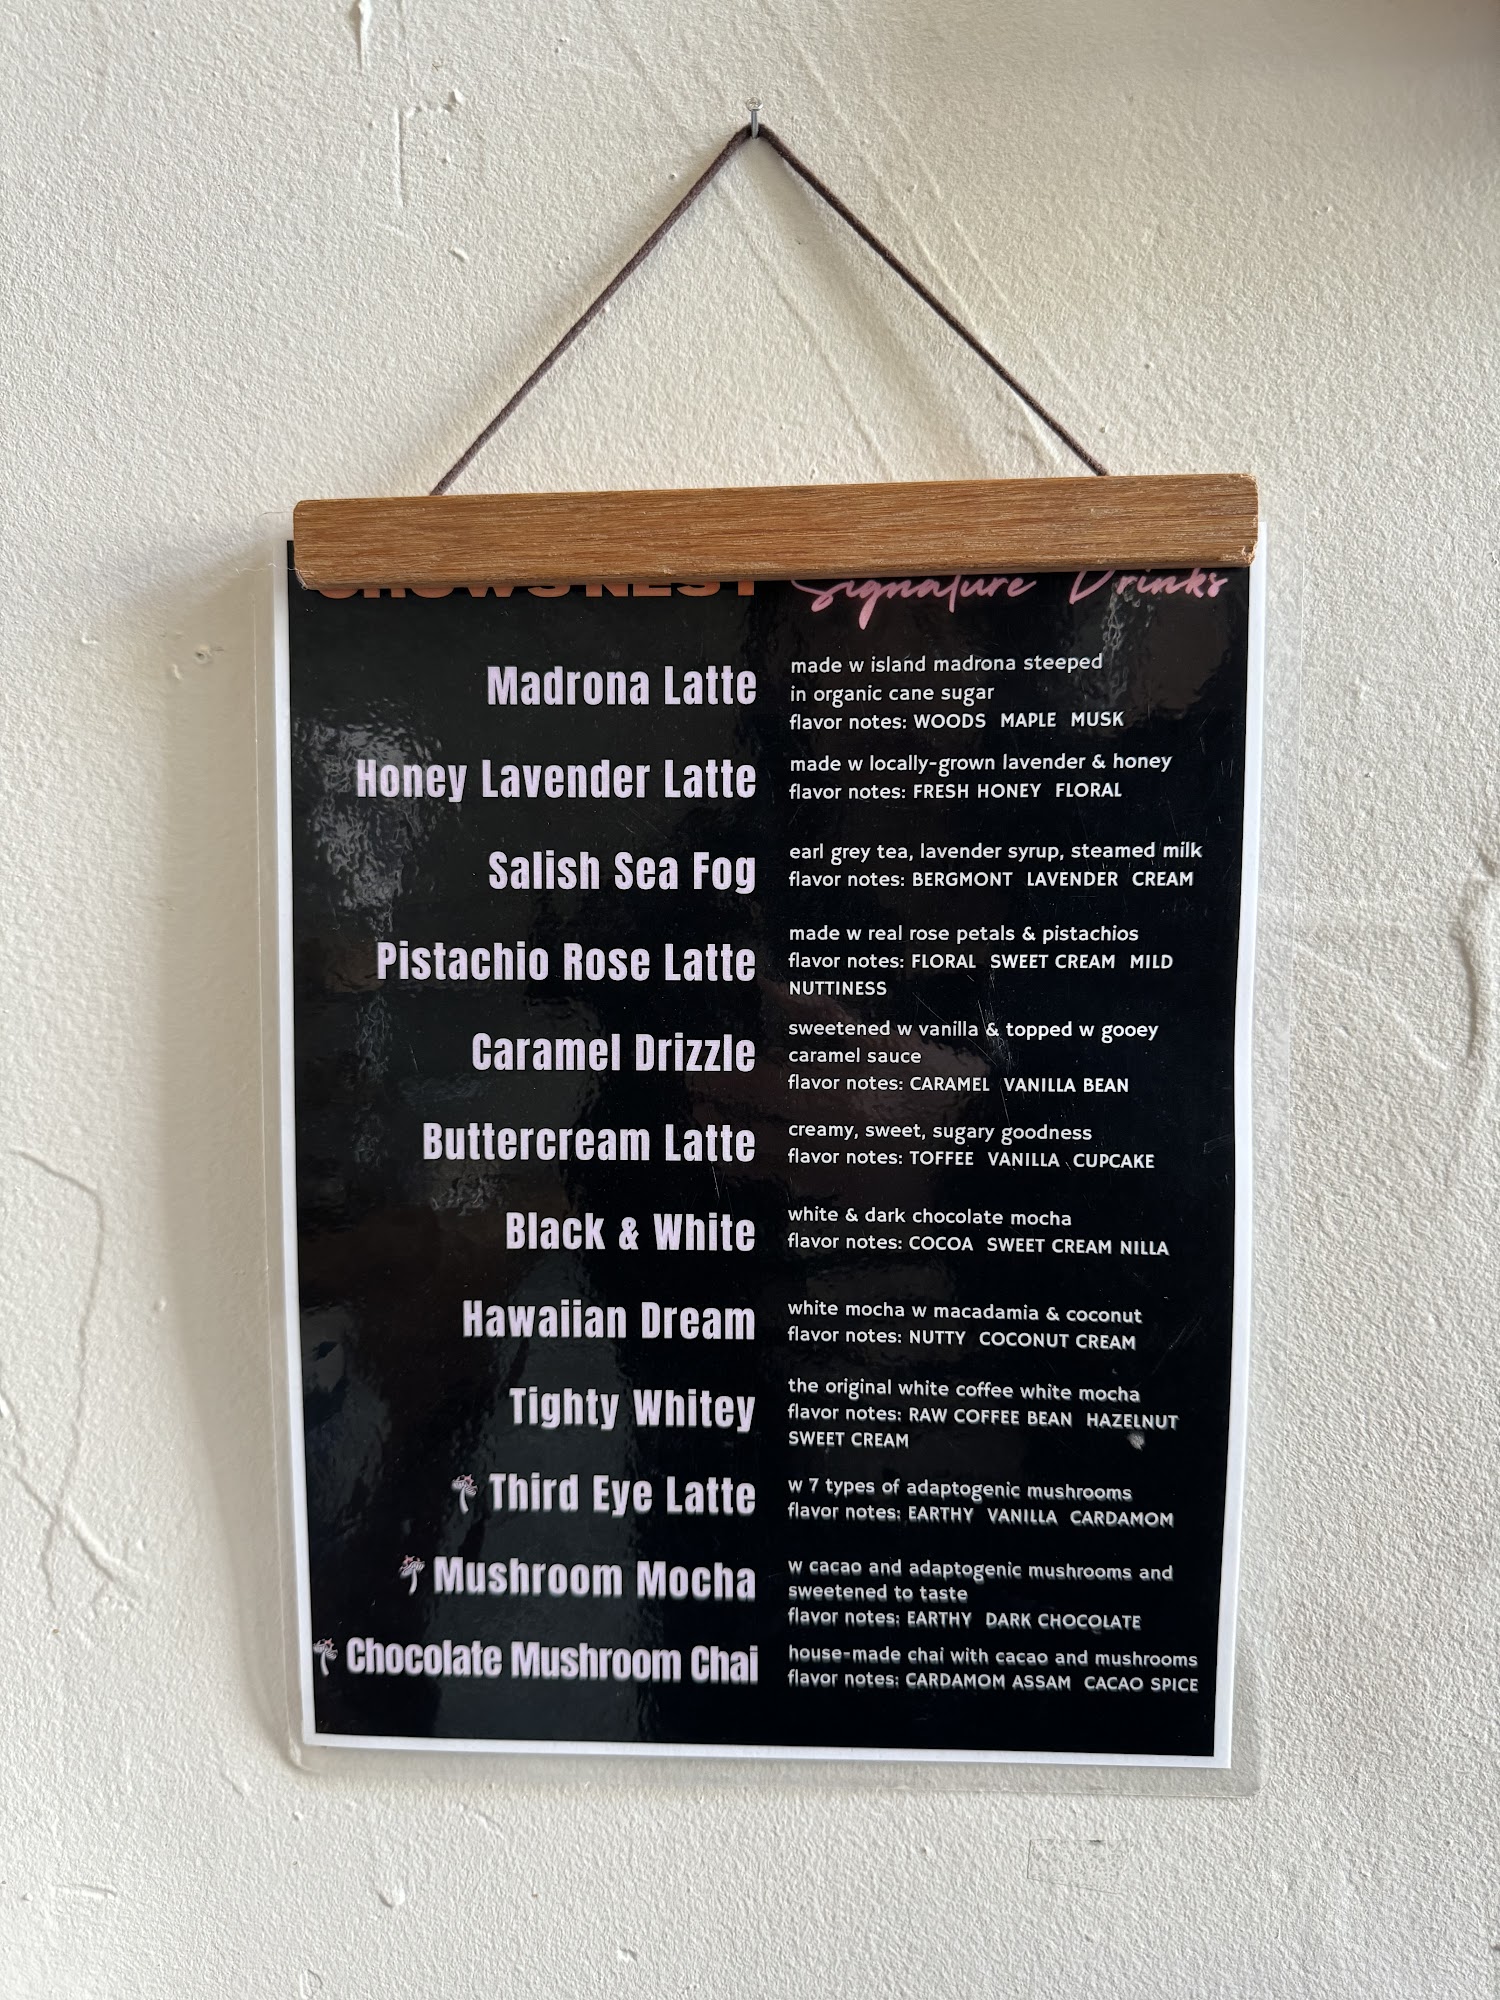 CROWS NEST Signature Drinks
Madrona Latte
made w island madrona steeped
in organic cane sugar
flavor notes: WOODS MAPLE MUSK
Honey Lavender Latte
made w locally-grown lavender & honey
flavor notes: FRESH HONEY FLORAL
Salish Sea Fog
earl grey tea, lavender syrup, steamed milk
flavor notes: BERGMONT LAVENDER CREAM
Pistachio Rose Latte
made w real rose petals & pistachios
flavor notes: FLORAL SWEET CREAM MILD
NUTTINESS
Caramel Drizzle
sweetened w vanilla & topped w gooey
caramel sauce
flavor notes: CARAMEL VANILLA BEAN
Buttercream Latte
creamy, sweet, sugary goodness
flavor notes: TOFFEE VANILLA CUPCAKE
Black & White
white & dark chocolate mocha
flavor notes: COCOA SWEET CREAM NILLA
Hawaiian Dream
white mocha w macadamia & coconut
flavor notes: NUTTY COCONUT CREAM
Tighty Whitey
the original white coffee white mocha
flavor notes: RAW COFFEE BEAN HAZELNUT
SWEET CREAM
Third Eye Latte
w 7 types of adaptogenic mushrooms
flavor notes: EARTHY VANILLA CARDAMOM
Mushroom Mocha
w cacao and adaptogenic mushrooms and
sweetened to taste
flavor notes: EARTHY DARK CHOCOLATE
Chocolate Mushroom Chai
house-made chai with cacao and mushrooms
flavor notes: CARDAMOM ASSAM CACAO SPICE